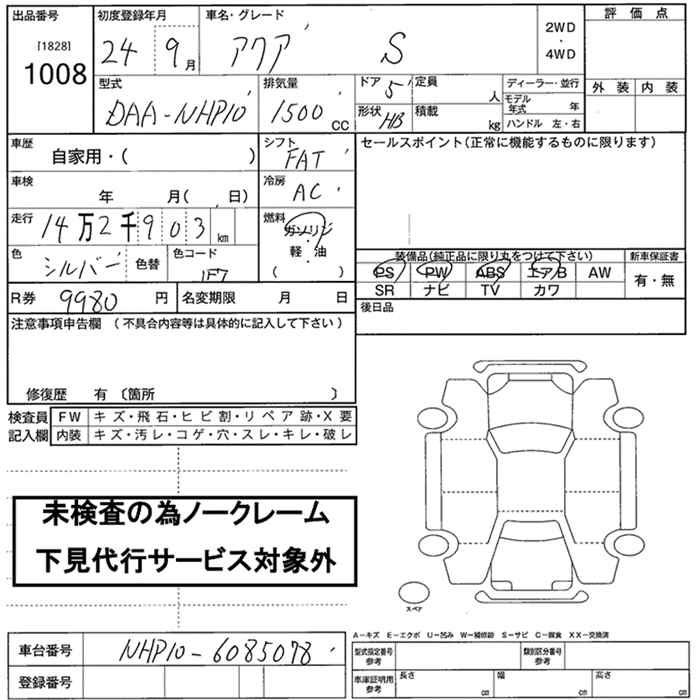 出品番号 初度登録年月 車名・グレード 評価点
[1828] 24 9月 アクア S 2WD・4WD
1008
型式 排気量 ドア 5 定員 人 ディーラー・並行 外装 内装
DAA-NHP10 1500 CC 形状 HB 積載 kg モデル年式 年
ハンドル 左・右
車歴 自家用・( ) シフト FAT セールスポイント(正常に機能するものに限ります)
車検 年 月( 日) 冷房 AC
走行 14万2千903 km 燃料 ガソリン
軽・油
( )
色 シルバー 色替 色コード 1F7
装備品(純正品に限り丸をつけて下さい) 新車保証書
PS PW ABS エアB AW 有・無
SR ナビ TV カワ
R券 9980 円 名変期限 月 日 後日品
注意事項申告欄 (不具合内容等は具体的に記入して下さい)
修復歴 有 〔箇所 〕
検査員 FW キズ・飛石・ヒビ割・リペア跡・X要
記入欄 内装 キズ・汚レ・コゲ・穴・スレ・キレ・破レ
未検査の為ノークレーム
下見代行サービス対象外
スペア
A-キズ E-エクボ U-凹み W-補修跡 S-サビ C-腐食 XX-交換済
車台番号 NHP10-6085078 型式指定番号 参考 類別区分番号 参考
登録番号 車庫証明用 参考 長さ cm 幅 cm 高さ cm